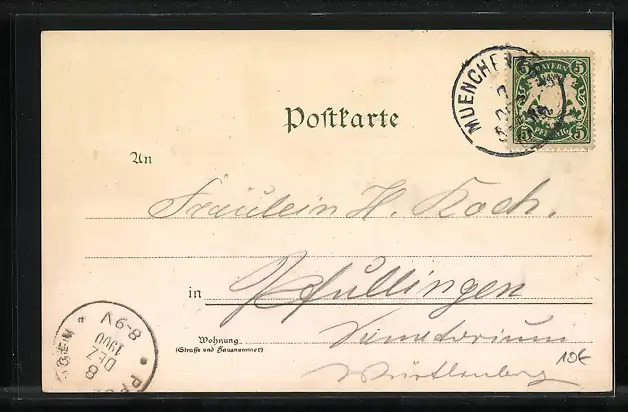 MUENCHEN
BAYERN
5 5
PFENNIG
5 5
Postkarte
An
Fräulein H. Koch.
in Pfullingen
Wohnung
(Straße und Hausnummer)
Sanatorium
Württemberg
8-9V
1900
DEZ
8
10€